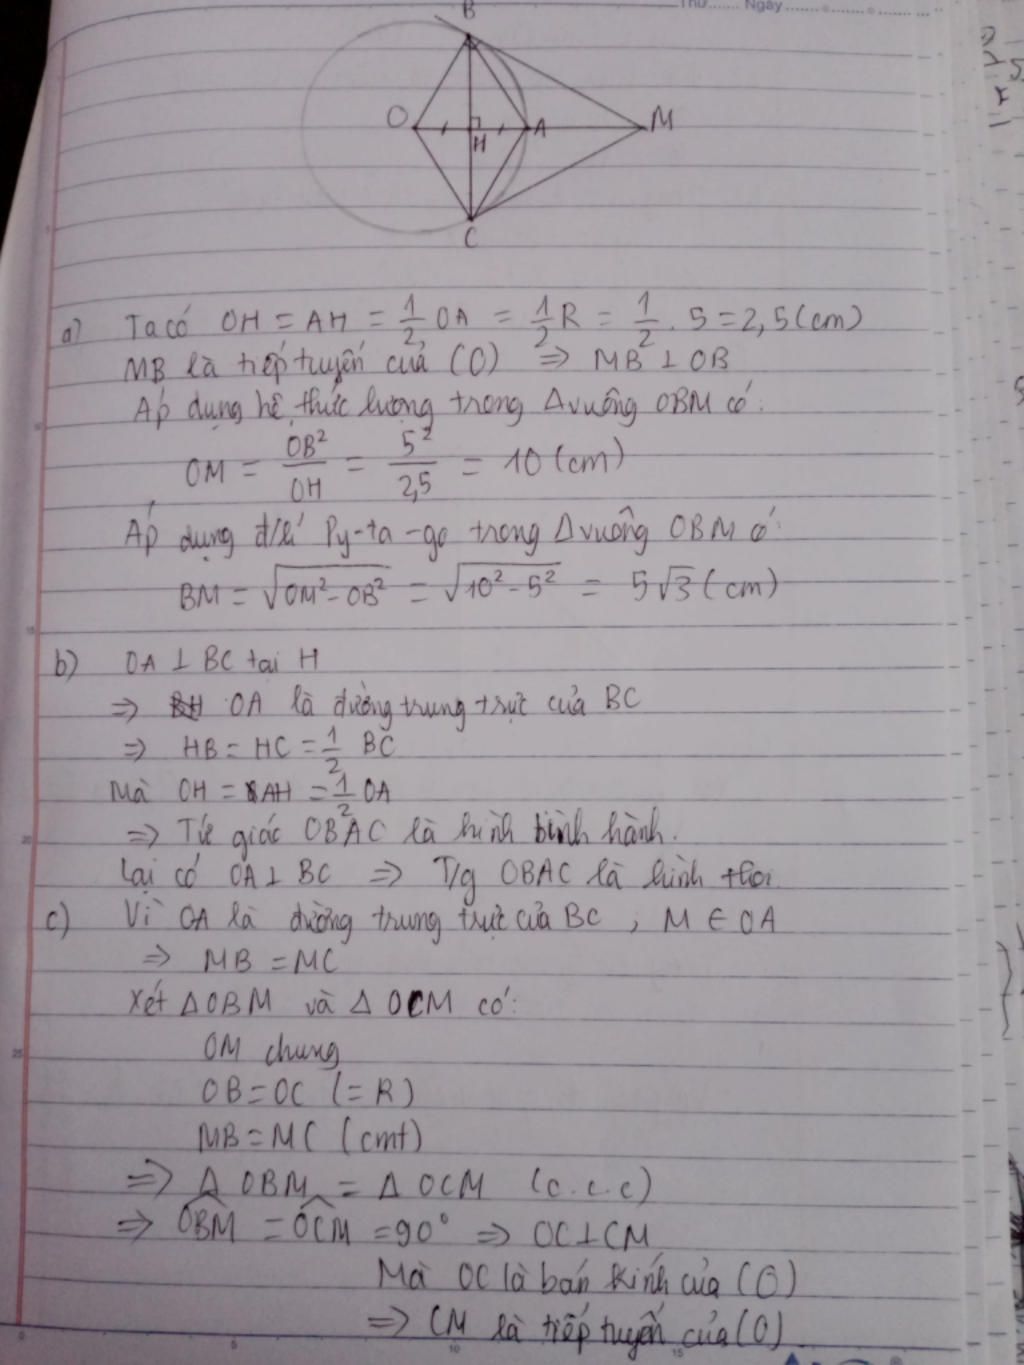 Thứ....... Ngày
B
O
H
A
M
C
a) Ta có OH = AH = 1/2 OA = 1/2 R = 1/2 . 5 = 2,5 (cm)
MB là tiếp tuyến của (O) => MB ⊥ OB
Áp dụng hệ thức lượng trong Δ vuông OBM có:
OM = OB²/OH = 5²/2,5 = 10 (cm)
Áp dụng đ/lí Py-ta-go trong Δ vuông OBM có:
BM = √(OM² - OB²) = √(10² - 5²) = 5√3 (cm)
b) OA ⊥ BC tại H
=> OA là đường trung trực của BC
=> HB = HC = 1/2 BC
Mà OH = AH = 1/2 OA
=> Tứ giác OBAC là hình bình hành.
Lại có OA ⊥ BC => T/g OBAC là hình thoi
c) Vì OA là đường trung trực của BC ; M ∈ OA
=> MB = MC
Xét Δ OBM và Δ OCM có:
OM chung
OB = OC (= R)
MB = MC (cmt)
=> Δ OBM = Δ OCM (c.c.c)
=> OBM = OCM = 90° => OC ⊥ CM
Mà OC là bán kính của (O)
=> CM là tiếp tuyến của (O)